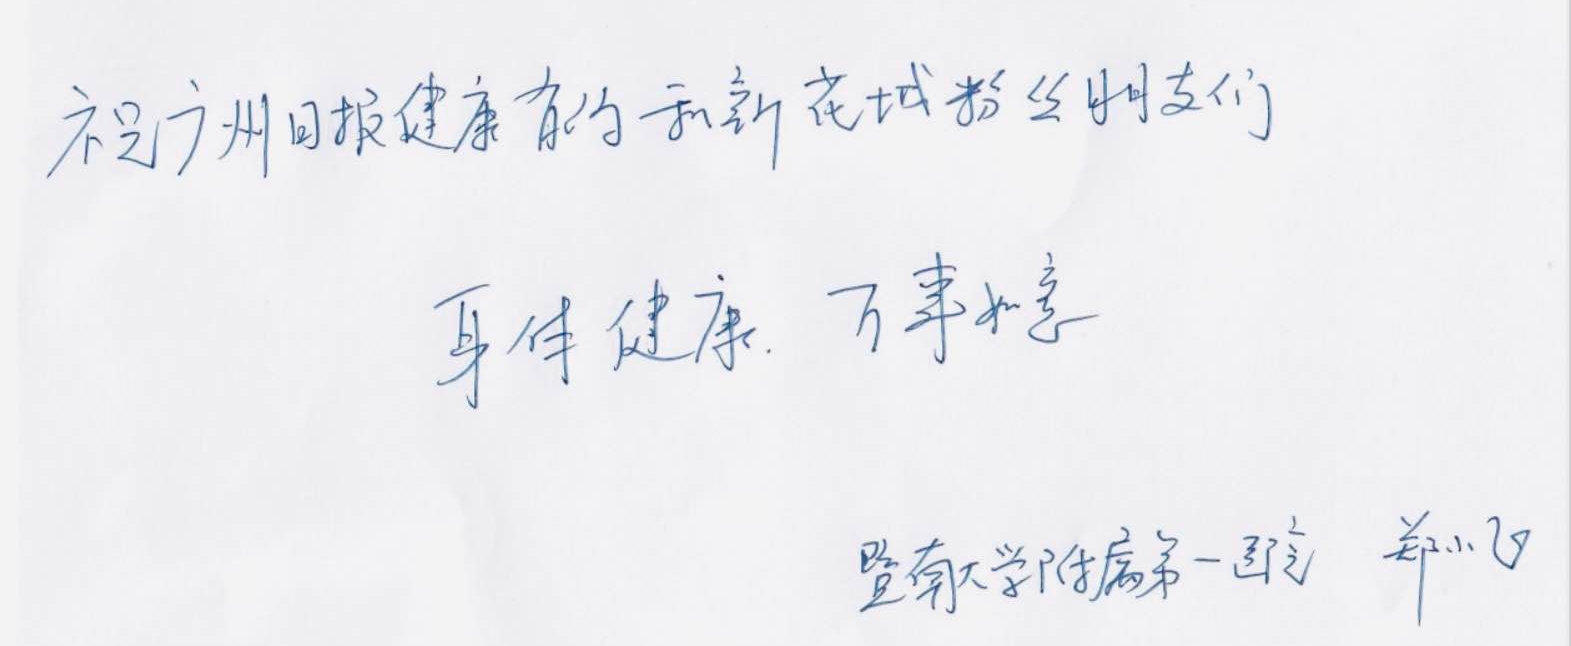 祝广州日报健康有约和新花城粉丝朋友们
身体健康.万事如意
暨南大学附属第一医院 郑小飞